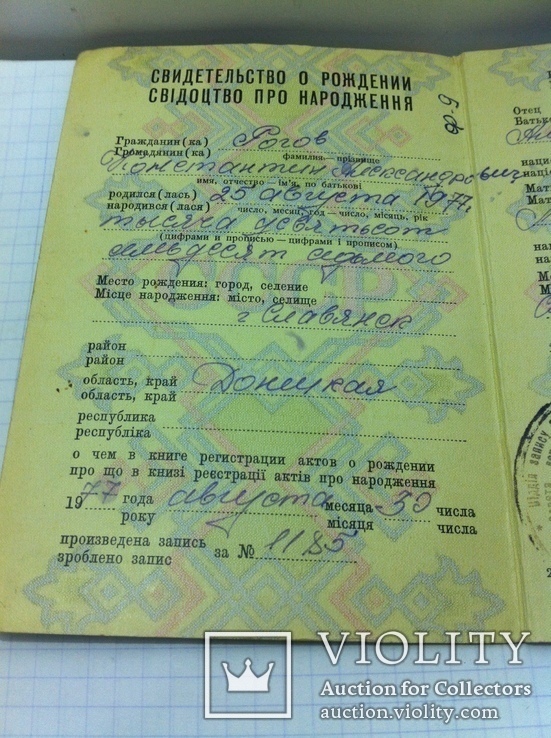 СВИДЕТЕЛЬСТВО О РОЖДЕНИИ
СВІДОЦТВО ПРО НАРОДЖЕННЯ
Гражданин(ка) Рогов
Громадянин(ка) фамилия — прізвище
Константин Александрович
имя, отчество — ім'я, по батькові
родился(лась) 25 августа 1977
народився(лася) число, месяц, год — число, місяць, рік
тысяча девятьсот
(цифрами и прописью — цифрами і прописом)
семьдесят седьмого
Место рождения: город, селение
Місце народження: місто, селище
г. Славянск
район
район
область, край Донецкая
область, край
республика
республіка
о чем в книге регистрации актов о рождении
про що в книзі реєстрації актів про народження
1977 года августа месяца 30 числа
року місяця числа
произведена запись за № 1185
зроблено запис
Отец
Батьк
наци
наці
Мат
Мат
VIOLITY
Auction for Collectors
auction.violity.com